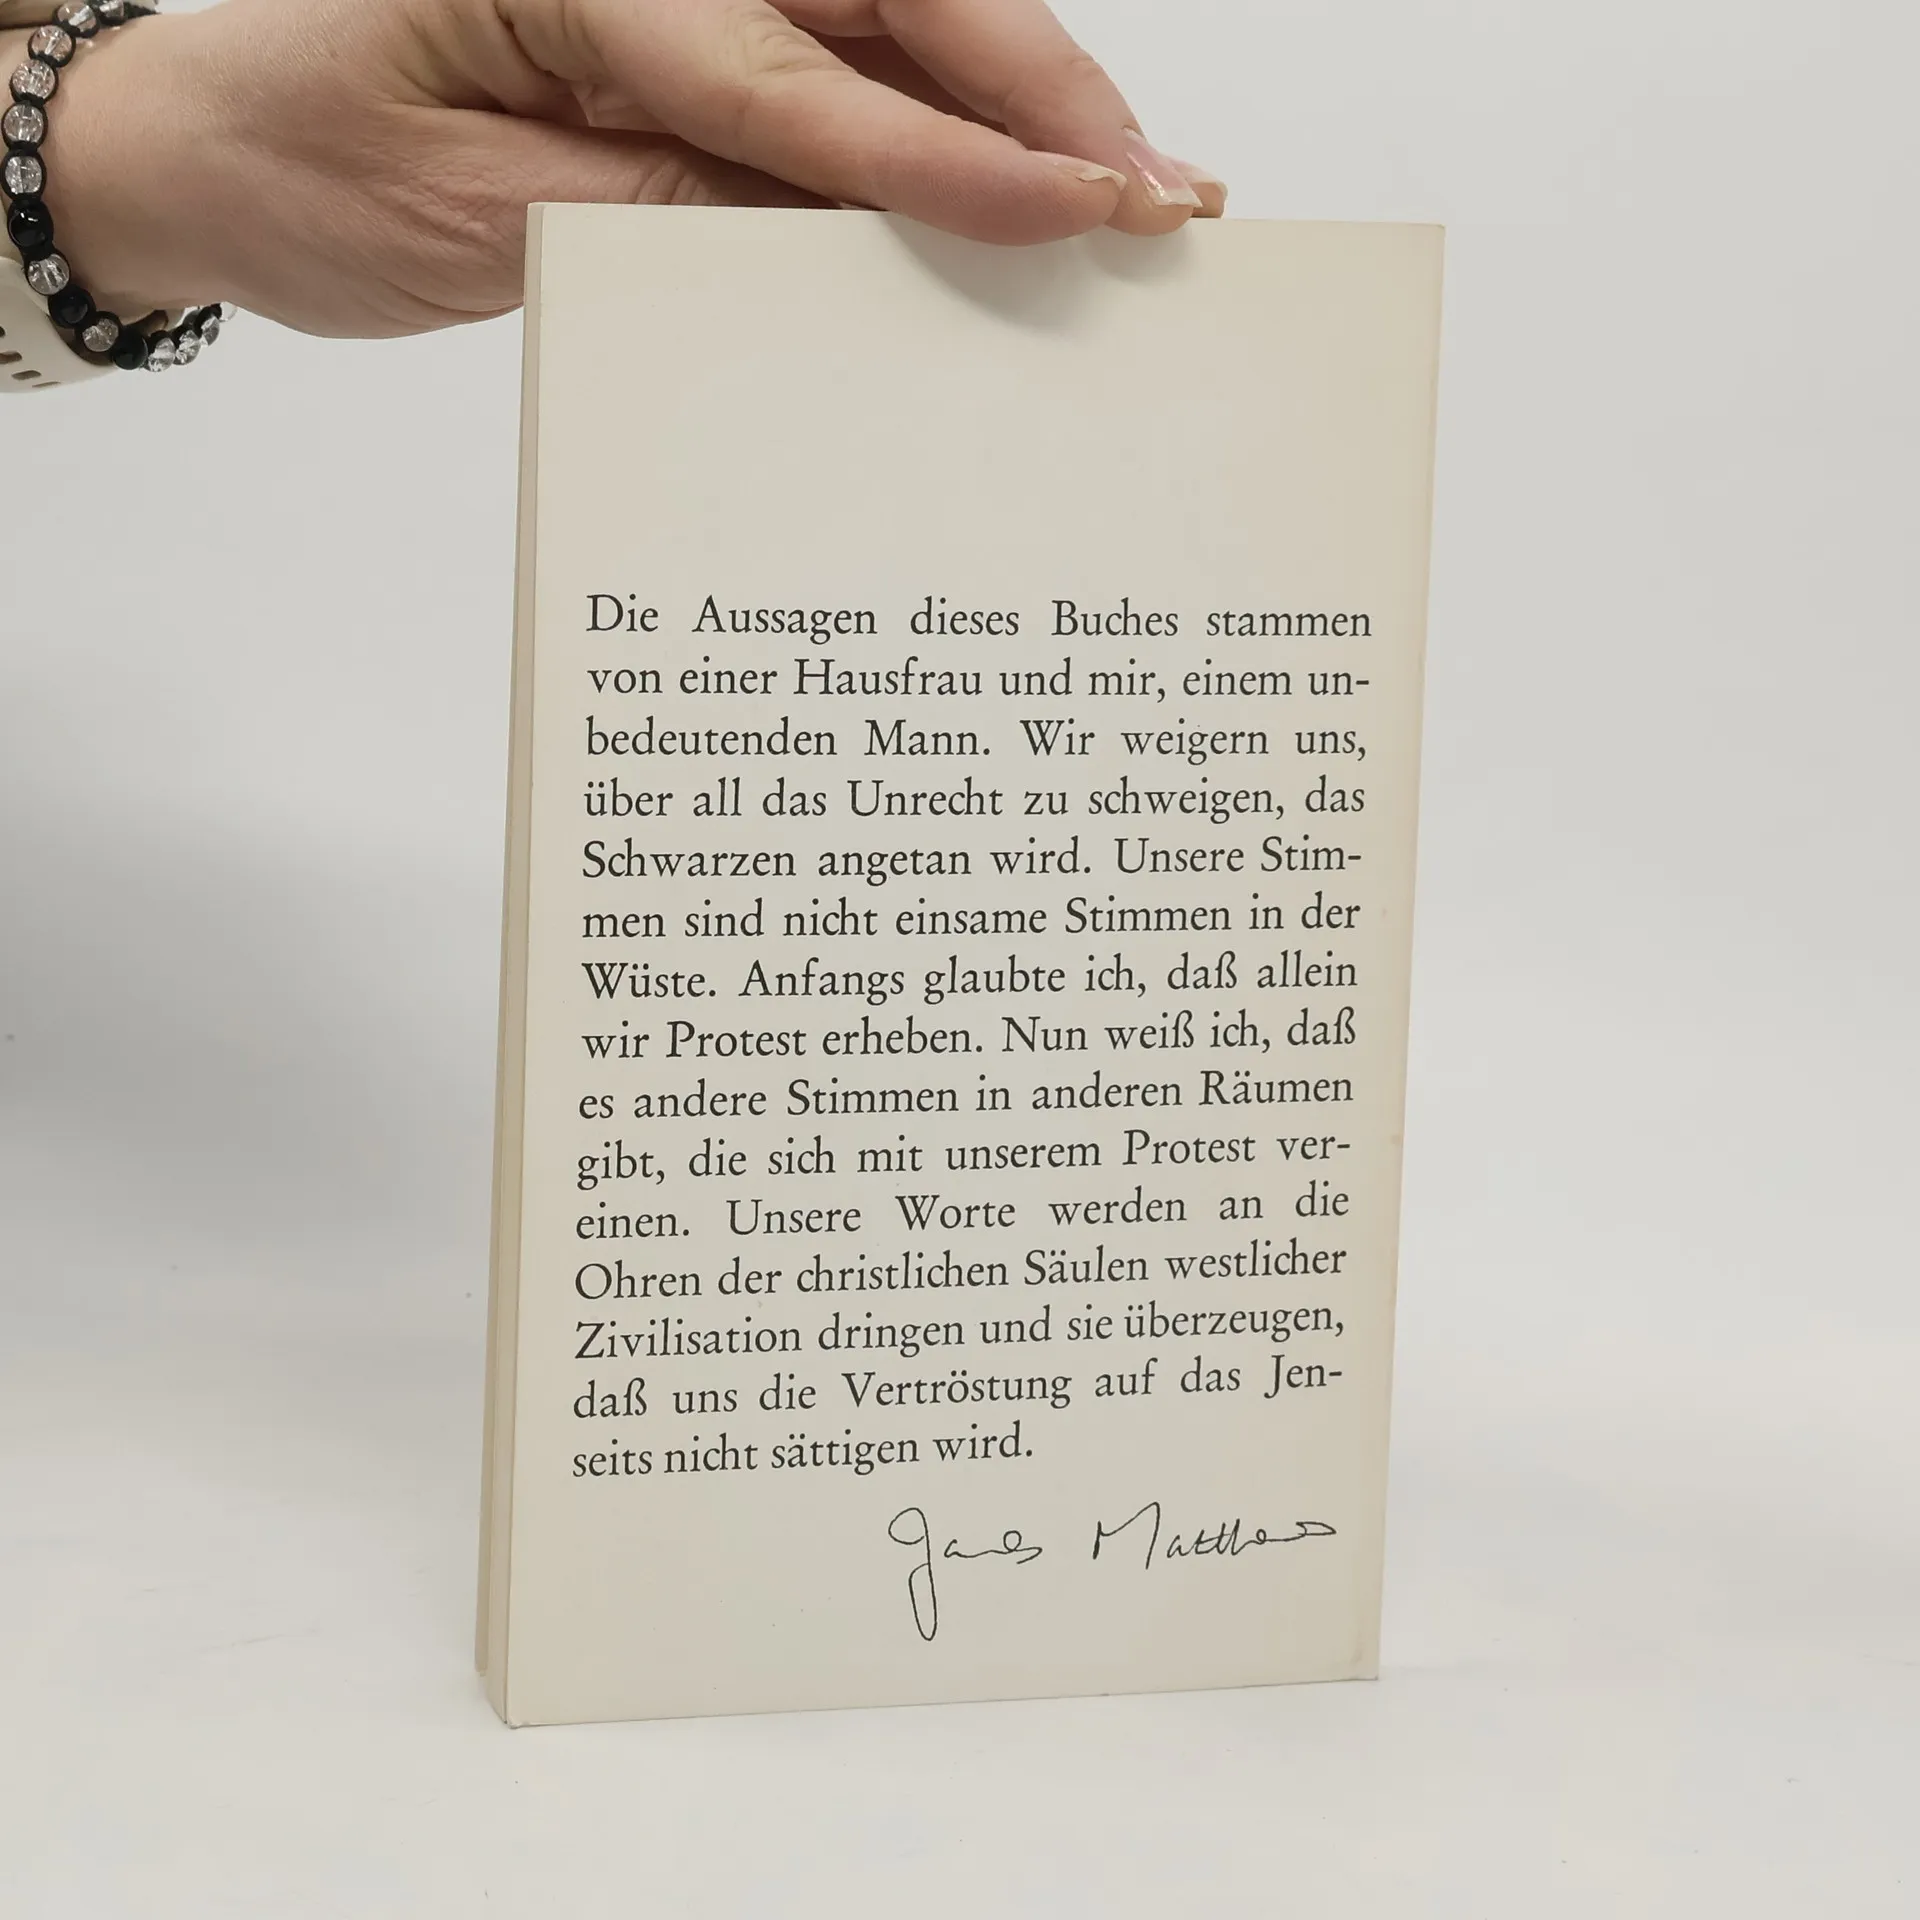 Die Aussagen dieses Buches stammen
von einer Hausfrau und mir, einem un-
bedeutenden Mann. Wir weigern uns,
über all das Unrecht zu schweigen, das
Schwarzen angetan wird. Unsere Stim-
men sind nicht einsame Stimmen in der
Wüste. Anfangs glaubte ich, daß allein
wir Protest erheben. Nun weiß ich, daß
es andere Stimmen in anderen Räumen
gibt, die sich mit unserem Protest ver-
einen. Unsere Worte werden an die
Ohren der christlichen Säulen westlicher
Zivilisation dringen und sie überzeugen,
daß uns die Vertröstung auf das Jen-
seits nicht sättigen wird.
James Matthews